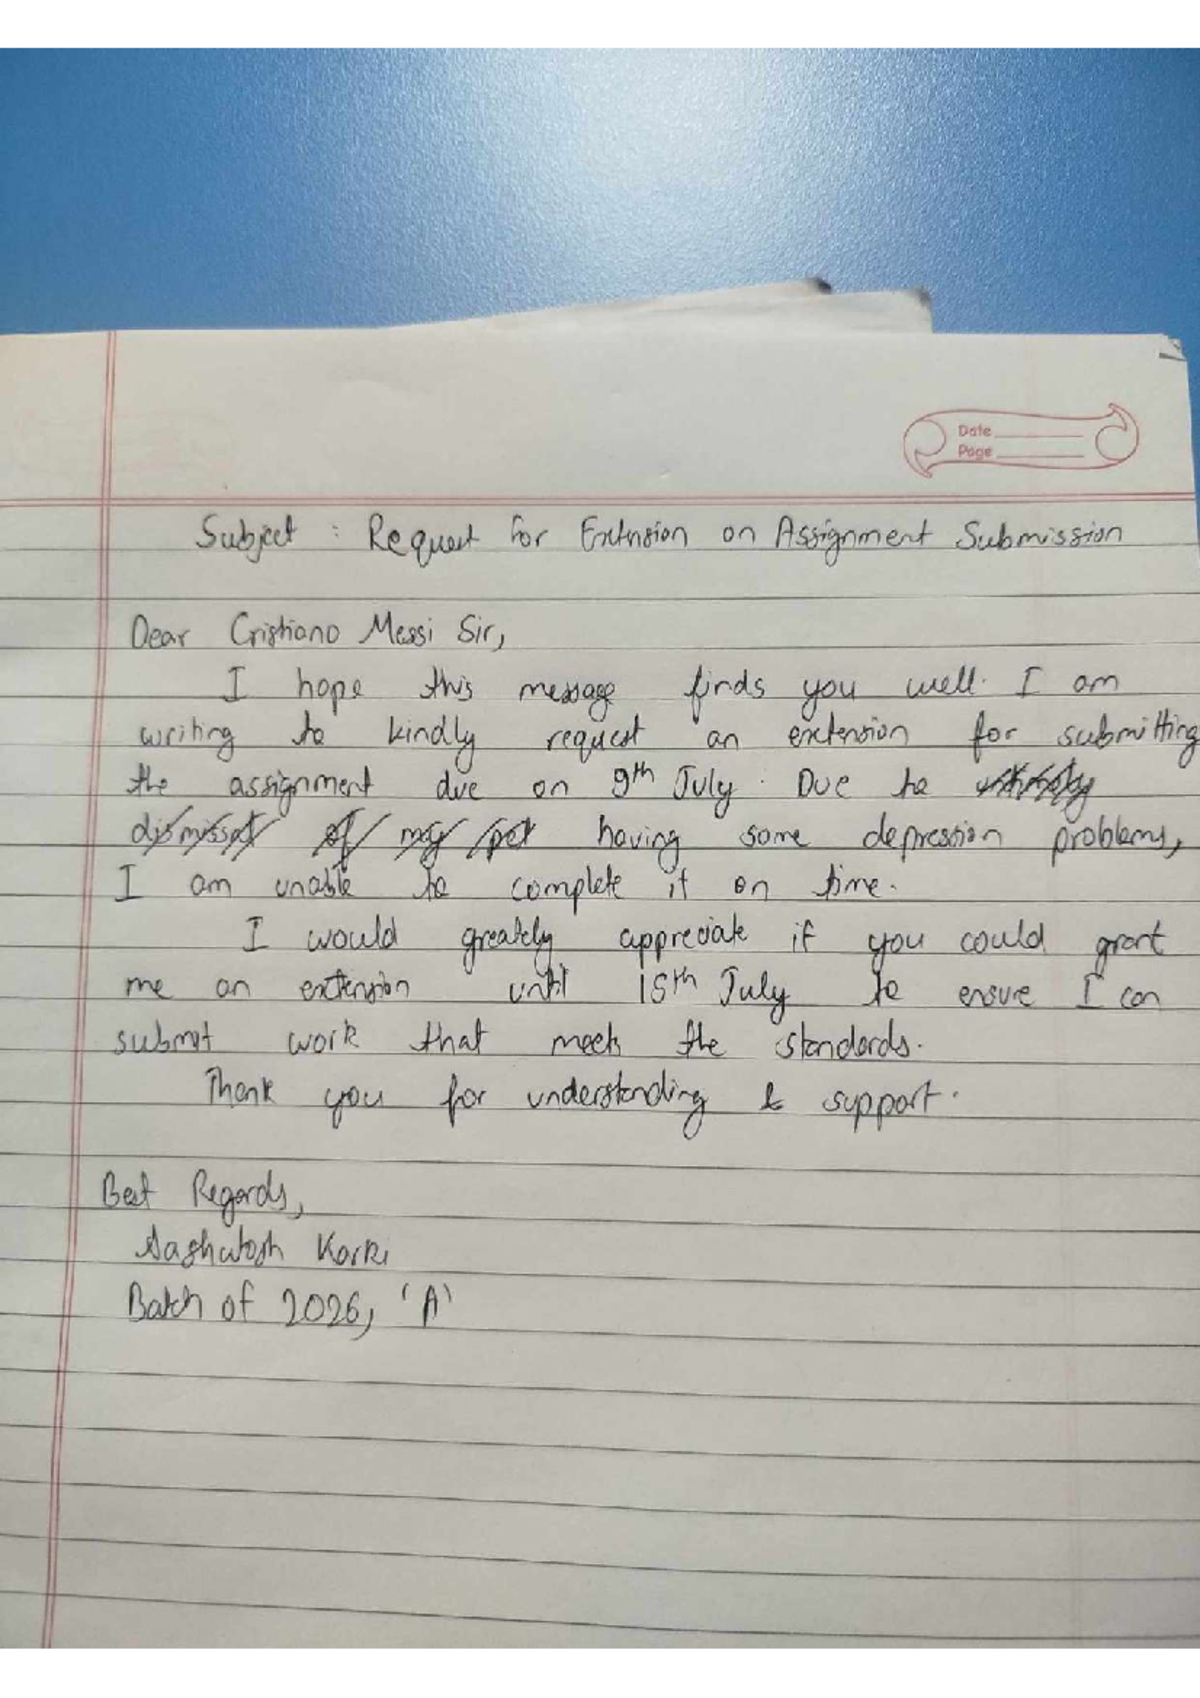 Date
Page
Subject : Request for Extension on Assignment Submission
Dear Cristiano Messi Sir,
I hope this message finds you well. I am
writing to kindly request an extension for submitting
the assignment due on 9th July. Due to
dismissal of my pet having some depression problems,
I am unable to complete it on time.
I would greately appreciate if you could grant
me an extension until 15th July to ensure I can
submit work that meets the standards.
Thank you for understanding & support.
Best Regards,
Aashutosh Karki
Batch of 2026, 'A'